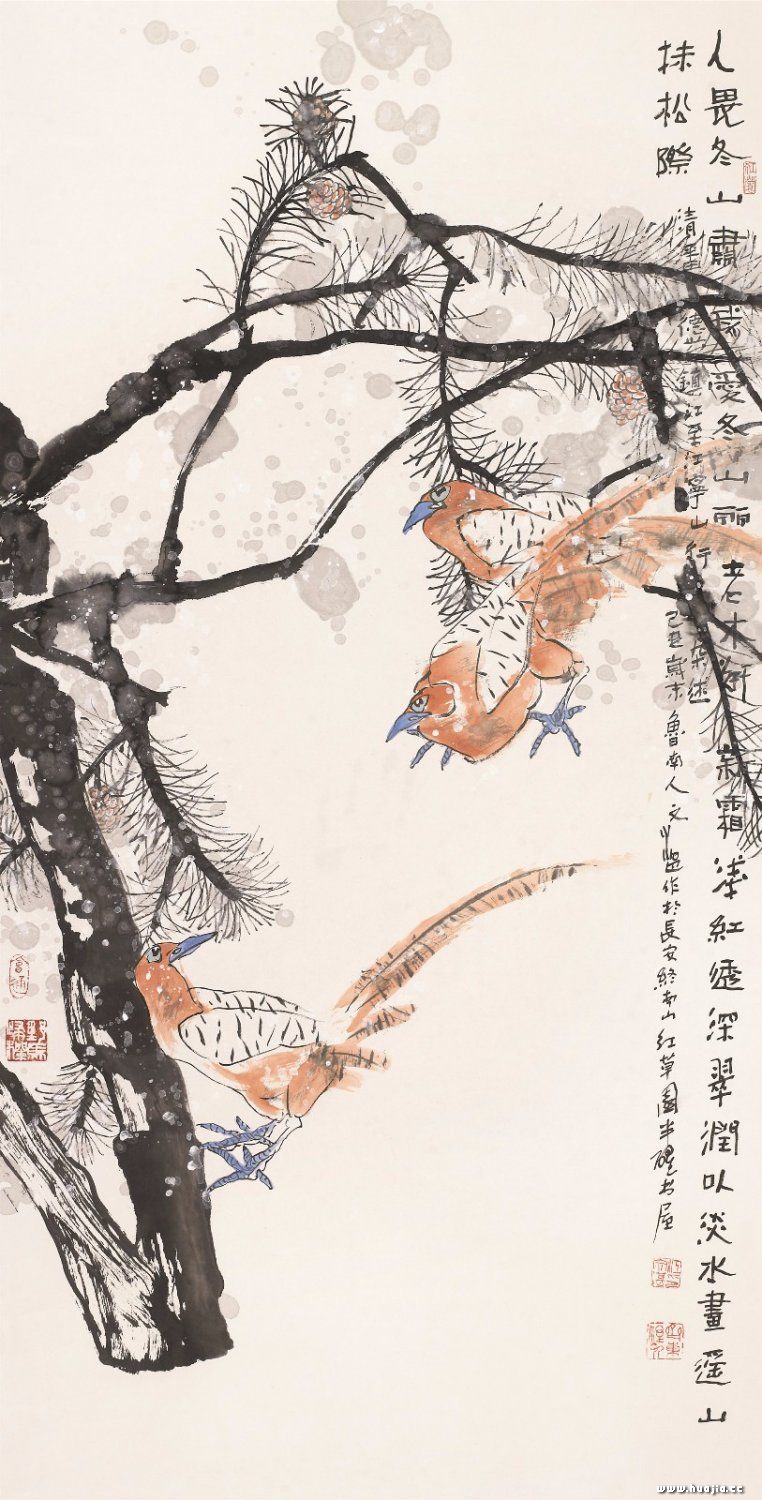 人畏冬山肅我愛冬山丽老木新霜紅透深翠潤以淡水畫遥山
抹松際
清德鎮江至江寧山行
己丑嵗末魯南人文作於長安終南山紅草園半醒书屋
www.huajia.cc